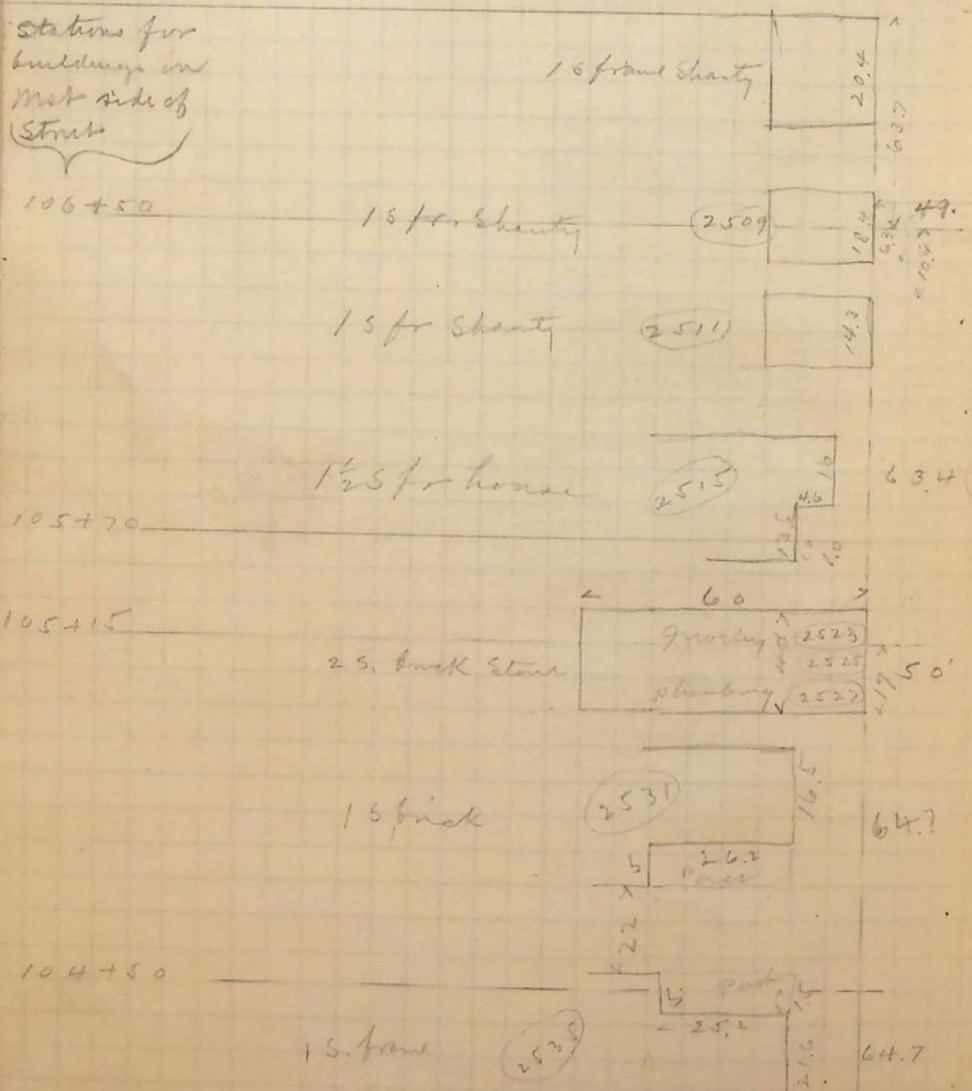 Stations for
buildings on
West side of
Street
1 S frame Shanty
20.4
637
106+50
1 S fr. Shanty
2509
18.4
49.
1 S fr Shanty
2511
14.3
1½ S fr house
2515
16
4.6
63.4
105+70
1.0
60
105+15
2 S. Brick Store
40
2523
2525
plumbing
2527
19
50'
1 S brick
2531
16.5
64.?
5
26.2
22
104+50
5
1.5
25.2
1 S. frame
2535
21.6
64.7